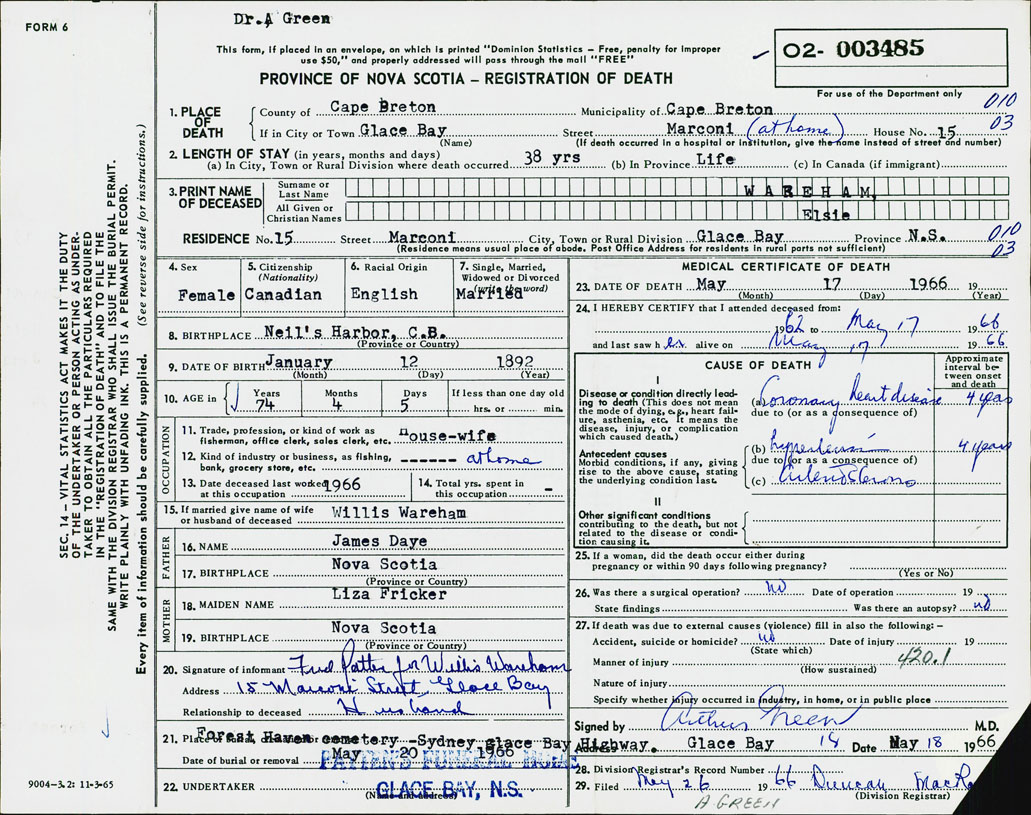 Dr. A Green
FORM 6
This form, if placed in an envelope, on which is printed "Dominion Statistics – Free, penalty for improper
use $50," and properly addressed will pass through the mail "FREE"
O2- 003485
PROVINCE OF NOVA SCOTIA – REGISTRATION OF DEATH
For use of the Department only
1. PLACE OF DEATH
County of Cape Breton Municipality of Cape Breton 010
If in City or Town Glace Bay Street Marconi (at home) House No. 15 03
(Name) (If death occurred in a hospital or institution, give the name instead of street and number)
2. LENGTH OF STAY (in years, months and days)
(a) In City, Town or Rural Division where death occurred 38 yrs (b) In Province Life (c) In Canada (if immigrant)
3. PRINT NAME OF DECEASED
Surname or Last Name WAREHAM,
All Given or Christian Names Elsie
RESIDENCE No. 15 Street Marconi City, Town or Rural Division Glace Bay Province N.S. 010
(Residence means usual place of abode. Post Office Address for residents in rural parts not sufficient) 03
4. Sex
Female
5. Citizenship
(Nationality)
Canadian
6. Racial Origin
English
7. Single, Married,
Widowed or Divorced
(write the word)
Married
8. BIRTHPLACE Neil's Harbor, C.B.
(Province or Country)
9. DATE OF BIRTH January 12 1892
(Month) (Day) (Year)
10. AGE in
Years Months Days If less than one day old
74 4 5 hrs. or min.
OCCUPATION
11. Trade, profession, or kind of work as
fisherman, office clerk, sales clerk, etc. House-wife
12. Kind of industry or business, as fishing,
bank, grocery store, etc. ------- at home
13. Date deceased last worked
at this occupation 1966
14. Total yrs. spent in
this occupation -
15. If married give name of wife
or husband of deceased Willis Wareham
FATHER
16. NAME James Daye
17. BIRTHPLACE Nova Scotia
(Province or Country)
MOTHER
18. MAIDEN NAME Liza Fricker
19. BIRTHPLACE Nova Scotia
(Province or Country)
20. Signature of informant Fred Patten for Willis Wareham
Address 15 Marconi Street Glace Bay
Relationship to deceased Husband
21. Place of
Forest Haven cemetery -Sydney glace Bay Highway.
Date of burial or removal May 20 1966
PATTEN'S FUNERAL HOME
22. UNDERTAKER GLACE BAY, N.S.
(Name and address)
9004-3.2: 11-3-65
MEDICAL CERTIFICATE OF DEATH
23. DATE OF DEATH May 17 1966 19
(Month) (Day) (Year)
24. I HEREBY CERTIFY that I attended deceased from:
1962 to May 17 1966
and last saw her alive on May 17 1966
CAUSE OF DEATH
Approximate
interval be-
tween onset
and death
I
Disease or condition directly lead-
ing to death (This does not mean
the mode of dying, e.g., heart fail-
ure, asthenia, etc. It means the
disease, injury, or complication
which caused death.)
(a) Coronary heart disease 4 years
due to (or as a consequence of)
Antecedent causes
Morbid conditions, if any, giving
rise to the above cause, stating
the underlying condition last.
(b) hypertension 4 years
due to (or as a consequence of)
(c)
II
Other significant conditions
contributing to the death, but not
related to the disease or condi-
tion causing it.
25. If a woman, did the death occur either during
pregnancy or within 90 days following pregnancy?
(Yes or No)
26. Was there a surgical operation? No Date of operation 19
State findings Was there an autopsy? no
27. If death was due to external causes (violence) fill in also the following: –
Accident, suicide or homicide? no Date of injury 19
(State which)
Manner of injury 420.1
(How sustained)
Nature of injury
Specify whether injury occurred in industry, in home, or in public place
Signed by Arthur Green M.D.
Address Glace Bay 18 Date May 18 1966
28. Division Registrar's Record Number
29. Filed May 26 1966 Duncan
(Division Registrar)
A GREEN
SEC. 14 – VITAL STATISTICS ACT MAKES IT THE DUTY
OF THE UNDERTAKER OR PERSON ACTING AS UNDER-
TAKER TO OBTAIN ALL THE PARTICULARS REQUIRED
IN THE "REGISTRATION OF DEATH" AND TO FILE THE
SAME WITH THE DIVISION REGISTRAR WHO SHALL ISSUE THE BURIAL PERMIT.
WRITE PLAINLY WITH UNFADING INK. THIS IS A PERMANENT RECORD.
Every item of information should be carefully supplied. (See reverse side for instructions.)